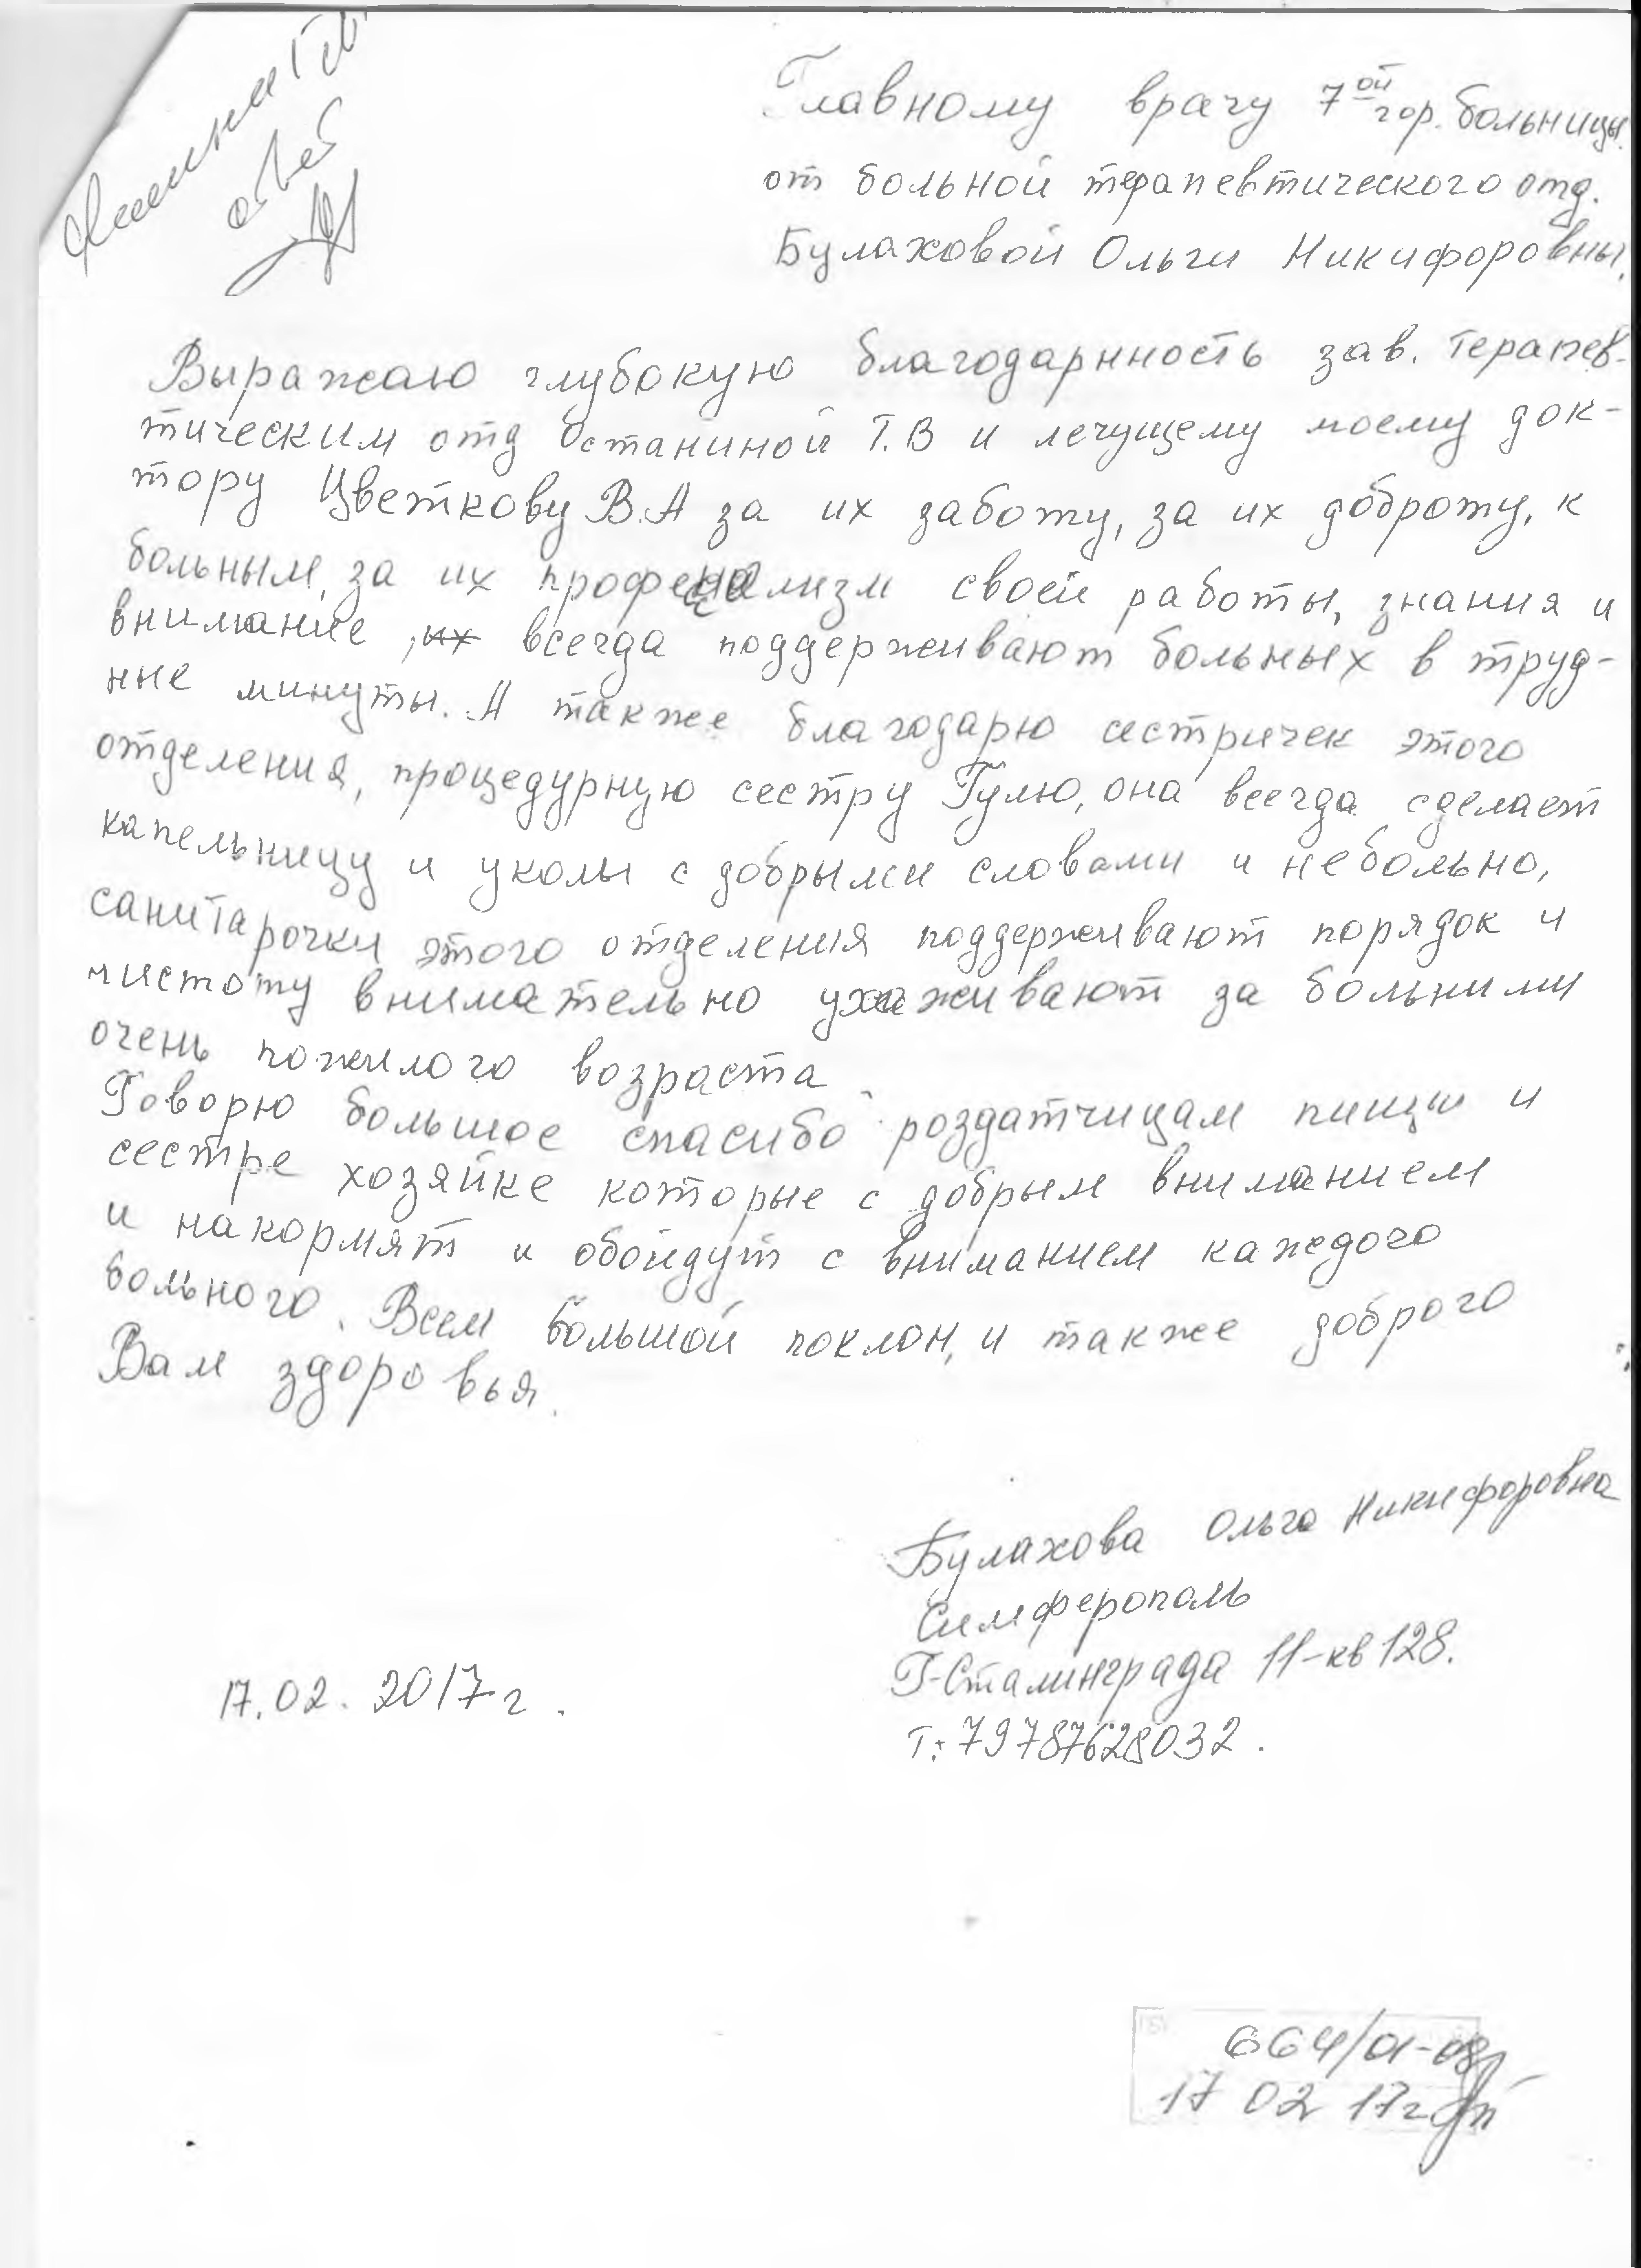 ответ
Главному врачу 7ой гор. больницы
от больной терапевтического отд.
Булаховой Ольги Никифоровны.
Выражаю глубокую благодарнность зав. терапев-
тическим отд Останиной Т.В и лечущему моему док-
тору Цветкову В.А за их заботу, за их доброту, к
больным, за их профессионализм своей работы, знания и
внимание, их всегда поддерживают больных в труд-
ные минуты. А также благодарю сестричек этого
отделения, процедурную сестру Гулю, она всегда сделает
капельницу и уколы с добрыми словами и небольно,
санитарочки этого отделения поддерживают порядок и
чистоту внимательно ухаживают за больными
очень пожилого возраста.
Говорю большое спасибо роздатчицам пищи и
сестре хозяйке которые с добрым вниманием
и накормят и обойдут с вниманием каждого
больного. Всем большой поклон, и также доброго
Вам здоровья.
Булахова Ольга Никифоровна
Симферополь
Г-Сталинграда 11-кв 128.
17.02.2017г.
т: 79787628032.
664/01-08
17 02 17г